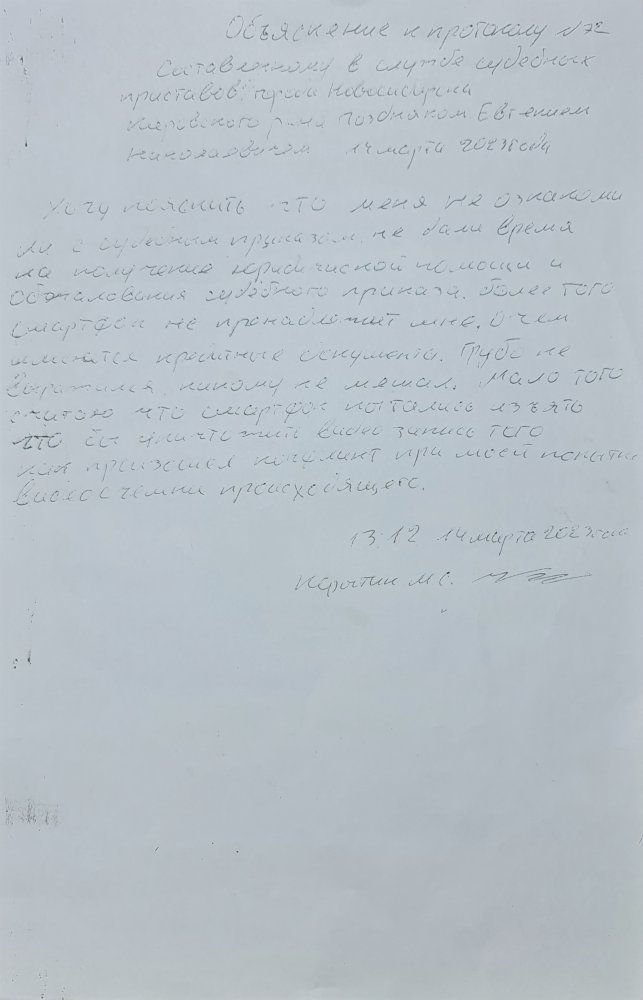 Объяснение к протоколу N72
Составленному в службе судебных
приставов города Новосибирска
Кировского р-на Поздняком Евгением
Николаевичем 14 марта 2023 года
Хочу пояснить что меня не ознакоми
ли с судебным приказом, не дали время
на получение юридической помощи и
обжалования судебного приказа. Более того
смартфон не пренадлежит мне, о чем
имеются кредитные документы. Грубо не
выражался, никому не мешал. Мало того
считаю что смартфон пытались изъять
что бы уничтожить видео запись того
как произошел при моей попытке
видеосъемки происходящего.
13:12 14 марта 2023 года
М С.